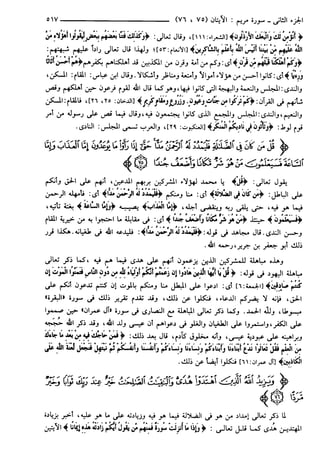 الجزء الثاني - سورة مريم : الآيتان (٧٥ ، ٧٦) ٥١٧
﴿أَنُؤْمِنُ لَكَ وَاتَّبَعَكَ الْأَرْذَلُونَ﴾ [الشعراء: ١١١]، وقال تعالى: ﴿وَكَذَٰلِكَ فَتَنَّا بَعْضَهُم بِبَعْضٍ لِّيَقُولُوا أَهَٰؤُلَاءِ مَنَّ
اللَّهُ عَلَيْهِم مِّن بَيْنِنَا أَلَيْسَ اللَّهُ بِأَعْلَمَ بِالشَّاكِرِينَ﴾ [الأنعام: ٥٣]؛ ولهذا قال تعالى راداً عليهم شبهتهم:
﴿وَكَمْ أَهْلَكْنَا قَبْلَهُم مِّن قَرْنٍ﴾ أي: وكم من أمة وقرن من المكذبين قد أهلكناهم بكفرهم ﴿هُمْ أَحْسَنُ أَثَاثًا
وَرِئْيًا﴾ أي: كانوا أحسن من هؤلاء أموالاً وأمتعة ومناظر وأشكالاً. وقال ابن عباس: المقام: المسكن،
والندي: المجلس والنعمة والبهجة التي كانوا فيها، وهو كما قال الله لقوم فرعون حين أهلكهم وقص
شأنهم في القرآن: ﴿كَمْ تَرَكُوا مِن جَنَّاتٍ وَعُيُونٍ وَزُرُوعٍ وَمَقَامٍ كَرِيمٍ﴾ [الدخان: ٢٥، ٢٦]، فالمقام: المسكن
والنعيم، والندي: المجلس والمجمع الذي كانوا يجتمعون فيه، وقال فيما قص على رسوله من أمر
قوم لوط: ﴿وَتَأْتُونَ فِي نَادِيكُمُ الْمُنكَرَ﴾ [العنكبوت: ٢٩]، والعرب تسمي المجلس: النادي.
﴿قُلْ مَن كَانَ فِي الضَّلَالَةِ فَلْيَمْدُدْ لَهُ الرَّحْمَٰنُ مَدًّا حَتَّىٰ إِذَا رَأَوْا مَا يُوعَدُونَ إِمَّا الْعَذَابَ وَإِمَّا
السَّاعَةَ فَسَيَعْلَمُونَ مَنْ هُوَ شَرٌّ مَّكَانًا وَأَضْعَفُ جُندًا﴾
يقول تعالى: ﴿قُلْ﴾ يا محمد لهؤلاء المشركين بربهم المدعين، أنهم على الحق وأنكم
على الباطل: ﴿مَن كَانَ فِي الضَّلَالَةِ﴾ أي: منا ومنكم ﴿فَلْيَمْدُدْ لَهُ الرَّحْمَٰنُ مَدًّا﴾ أي: فأمهله الرحمن
فيما هو فيه، حتى يلقى ربه وينقضي أجله، ﴿إِمَّا الْعَذَابَ﴾ يصيبه ﴿وَإِمَّا السَّاعَةَ﴾ بغتة تأتيه،
﴿فَسَيَعْلَمُونَ﴾ حينئذ ﴿مَنْ هُوَ شَرٌّ مَّكَانًا وَأَضْعَفُ جُندًا﴾ أي: في مقابلة ما احتجوا به من خيرية المقام
وحسن الندي. قال مجاهد في قوله: ﴿فَلْيَمْدُدْ لَهُ الرَّحْمَٰنُ مَدًّا﴾: فليدعه الله في طغيانه. هكذا قرر
ذلك أبو جعفر بن جرير، رحمه الله.
وهذه مباهلة للمشركين الذين يزعمون أنهم على هدى فيما هم فيه، كما ذكر تعالى
مباهلة اليهود في قوله: ﴿قُلْ يَا أَيُّهَا الَّذِينَ هَادُوا إِن زَعَمْتُمْ أَنَّكُمْ أَوْلِيَاءُ لِلَّهِ مِن دُونِ النَّاسِ فَتَمَنَّوُا الْمَوْتَ إِن
كُنتُمْ صَادِقِينَ﴾ [الجمعة: ٦] أي: ادعوا على المبطل منا ومنكم بالموت إن كنتم تدعون أنكم على
الحق، فإنه لا يضركم الدعاء، فنكلوا عن ذلك، وقد تقدم تقرير ذلك في سورة «البقرة»
مبسوطاً، ولله الحمد. وكما ذكر تعالى المباهلة مع النصارى في سورة «آل عمران» حين صمموا
على الكفر، واستمروا على الطغيان والغلو في دعواهم أن عيسى ولد الله، وقد ذكر الله حججه
وبراهينه على عبودية عيسى، وأنه مخلوق كآدم، قال بعد ذلك: ﴿فَمَنْ حَاجَّكَ فِيهِ مِن بَعْدِ مَا جَاءَكَ
مِنَ الْعِلْمِ فَقُلْ تَعَالَوْا نَدْعُ أَبْنَاءَنَا وَأَبْنَاءَكُمْ وَنِسَاءَنَا وَنِسَاءَكُمْ وَأَنفُسَنَا وَأَنفُسَكُمْ ثُمَّ نَبْتَهِلْ فَنَجْعَل لَّعْنَتَ اللَّهِ عَلَى
الْكَاذِبِينَ﴾ [آل عمران: ٦١] فنكلوا أيضاً عن ذلك.
﴿وَيَزِيدُ اللَّهُ الَّذِينَ اهْتَدَوْا هُدًى وَالْبَاقِيَاتُ الصَّالِحَاتُ خَيْرٌ عِندَ رَبِّكَ ثَوَابًا وَخَيْرٌ
مَّرَدًّا﴾
لما ذكر تعالى إمداد من هو في الضلالة فيما هو فيه وزيادته على ما هو عليه، أخبر بزيادة
المهتدين هدى كما قال تعالى: ﴿وَإِذَا مَا أُنزِلَتْ سُورَةٌ فَمِنْهُم مَّن يَقُولُ أَيُّكُمْ زَادَتْهُ هَٰذِهِ إِيمَانًا﴾ الآيتين